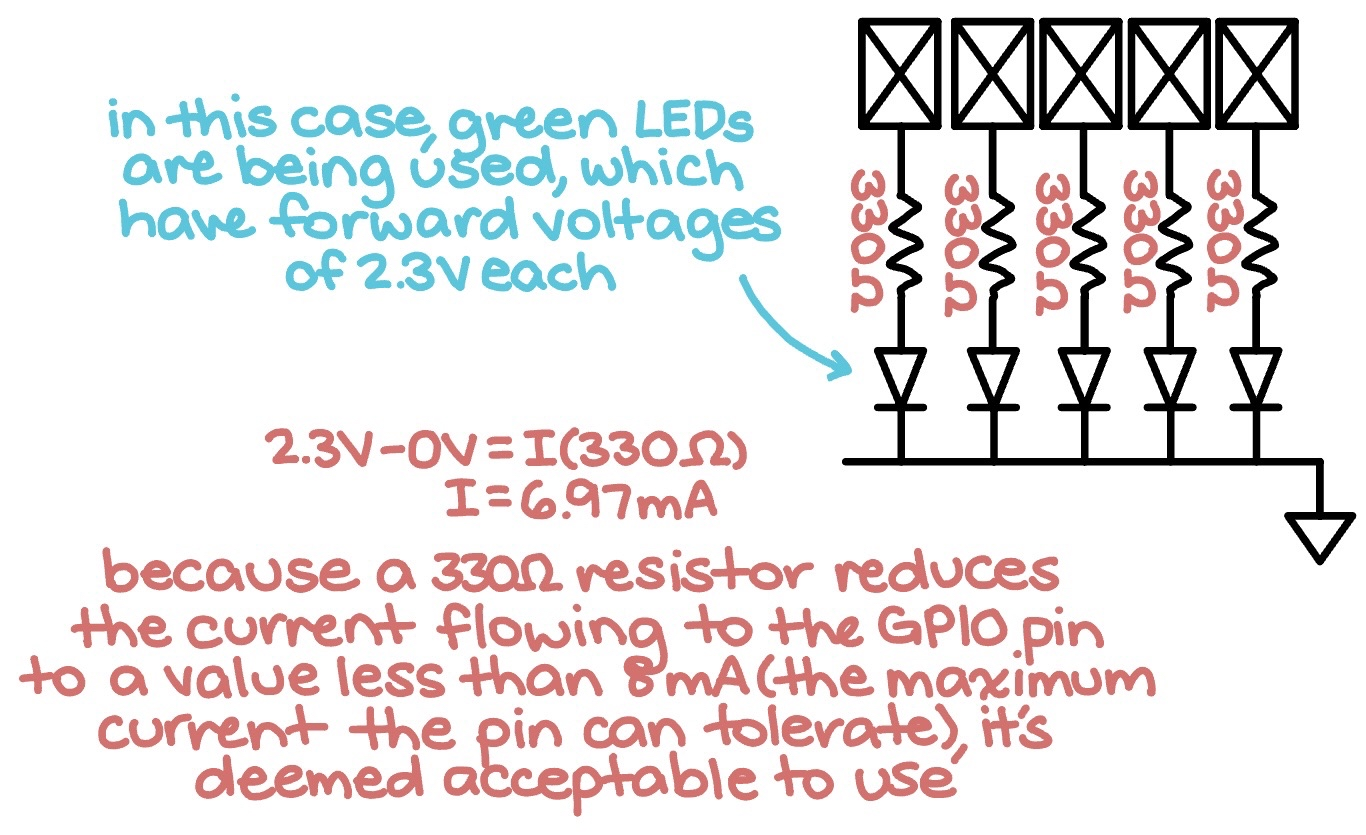 in this case, green LEDs
are being used, which
have forward voltages
of 2.3V each
330Ω
330Ω
330Ω
330Ω
330Ω
2.3V-0V=I(330Ω)
I=6.97mA
because a 330Ω resistor reduces
the current flowing to the GPIO pin
to a value less than 8mA(the maximum
current the pin can tolerate), it's
deemed acceptable to use